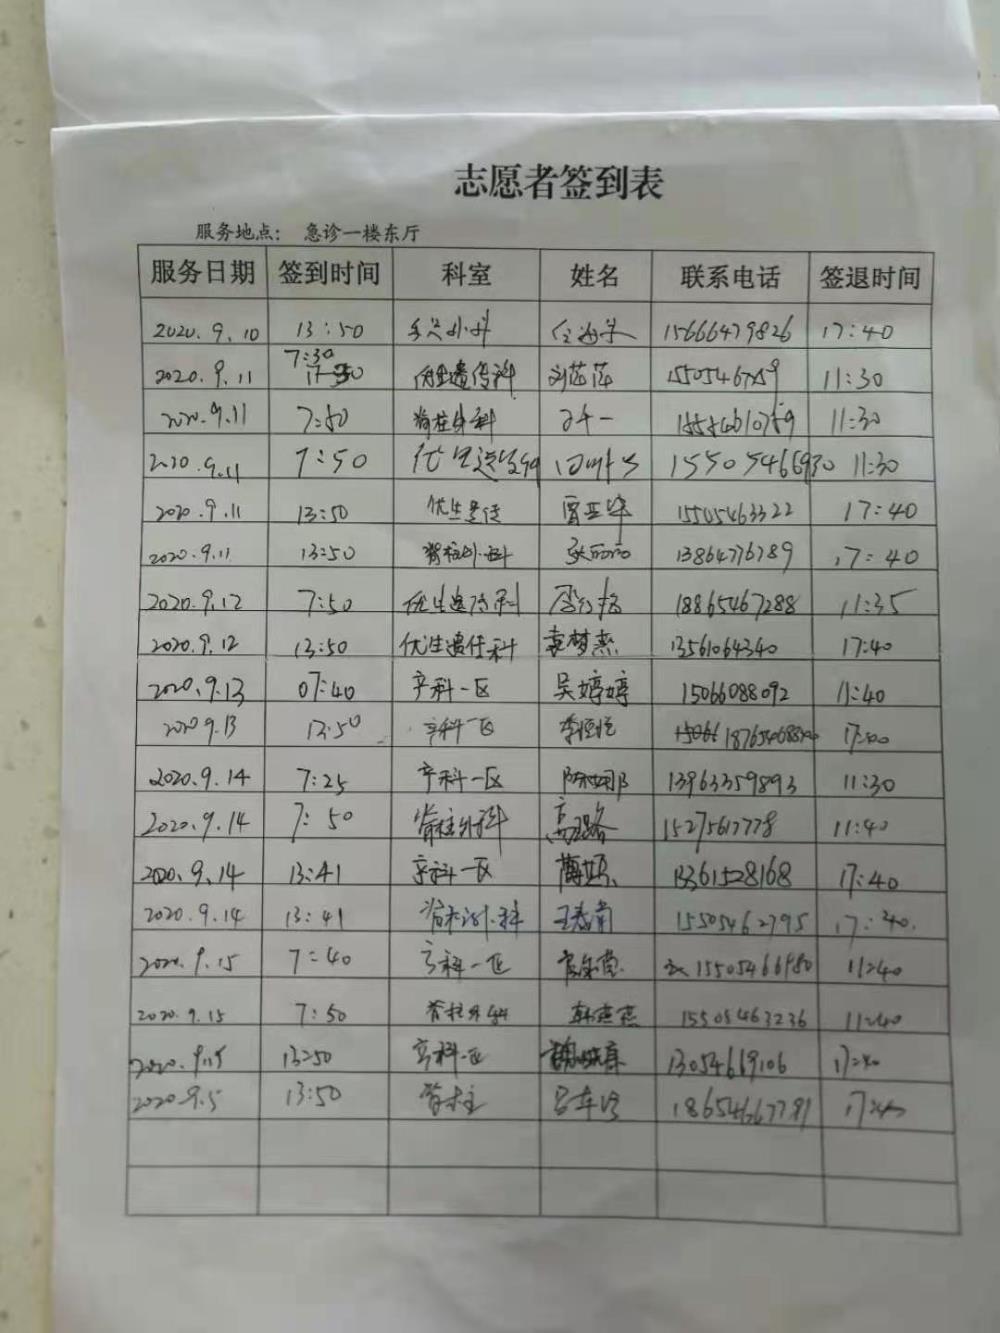 志愿者签到表
服务地点： 急诊一楼东厅
服务日期 签到时间 科室 姓名 联系电话 签退时间
2020.9.10 13:50 手足外科 15666479826 17:40
2020.9.11 7:30 优生遗传科 刘莎莎 11:30
2020.9.11 7:50 脊柱外科 11:30
2020.9.11 7:50 优生遗传科 15505466930 11:30
2020.9.11 13:50 优生遗传 15505463322 17:40
2020.9.11 13:50 脊柱外科 13864776789 17:40
2020.9.12 7:50 优生遗传科 18865467288 11:35
2020.9.12 13:50 优生遗传科 袁梦燕 13561064340 17:40
2020.9.13 07:40 产科一区 吴婷婷 15066088092 11:40
2020 9.13 13:50 产科一区 17:40
2020.9.14 7:25 产科一区 13963359893 11:30
2020.9.14 7:50 脊柱外科 高璐 15275617778 11:40
2020.9.14 13:41 产科一区 13361528168 17:40
2020.9.14 13:41 脊柱外科 王春南 15505462795 17:40
2020.9.15 7:40 产科一区 15505466980 11:40
2020.9.15 7:50 脊柱外科 韩燕燕 15505463236 11:40
2020.9.15 13:50 产科一区 13054669106 17:40
2020.9.5 13:50 脊柱 18654667791 17:40